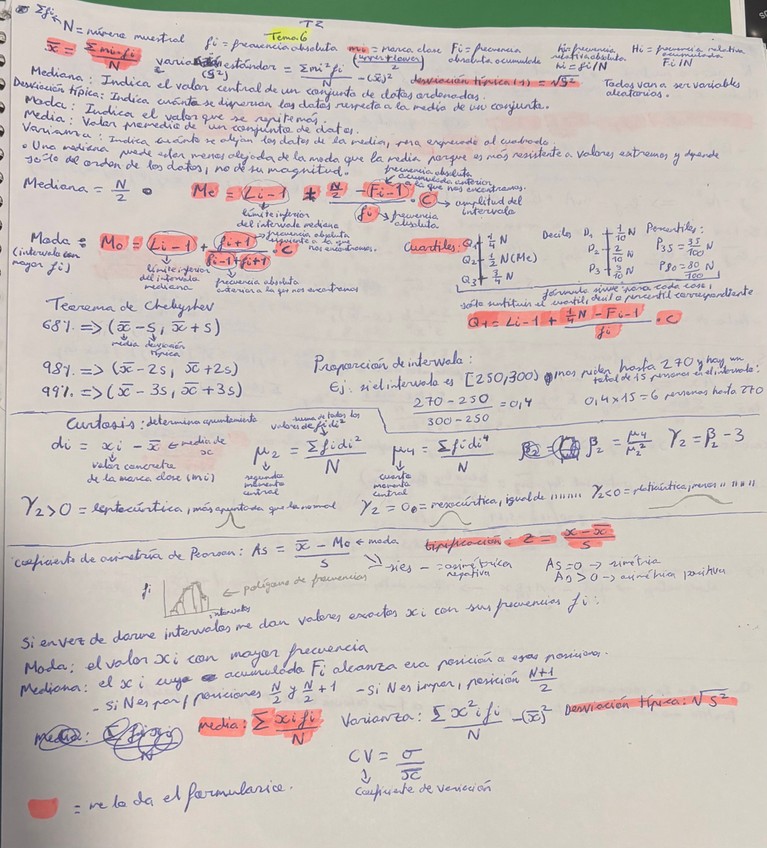 Σfi N = número muestral
T2
Tema 6
fi = frecuencia absoluta
mi = marca clase (upper+lower)
Fi = frecuencia absoluta acumulada
hi = frecuencia relativa absoluta hi = fi/N
Hi = frecuencia relativa acumulada Fi/N
x̄ = Σmi·fi / N
varianza estándar (S²) = Σmi²fi / N - (x̄)²
desviación típica (s) = √S²
Todas van a ser variables aleatorias.
Mediana: Indica el valor central de un conjunto de datos ordenados.
Desviación típica: Indica cuánto se dispersan los datos respecto a la media de un conjunto.
Moda: Indica el valor que se repite más.
Media: Valor promedio de un conjunto de datos.
Varianza: Indica cuánto se alejan los datos de la media, pero expresado al cuadrado.
• Una mediana puede estar menos alejada de la moda que la media porque es más resistente a valores extremos y depende
solo del orden de los datos, no de su magnitud.
Mediana = N/2 • Me = Li-1 + (N/2 - Fi-1) / fi · C
frecuencia absoluta acumulada anterior a la que nos encontramos.
límite inferior del intervalo mediana
frecuencia absoluta
amplitud del intervalo
Moda: Mo = Li-1 + fi+1 / (fi-1 + fi+1) · C
(intervalo con mayor fi)
frecuencia absoluta siguiente a la que nos encontramos.
límite inferior del intervalo mediana
frecuencia absoluta anterior a la que nos encontramos
Cuartiles: Q1 = 1/4 N
Q2 = 1/2 N (Me)
Q3 = 3/4 N
Deciles D1 1/10 N
D2 = 2/10 N
D3 3/10 N
Percentiles:
P35 = 35/100 N
P80 = 80/100 N
fórmula sirve para cada caso,
solo sustituir el cuartil, decil o percentil correspondiente
Q1 = Li-1 + (1/4 N - Fi-1) / fi · C
Teorema de Chebyshev
68% => (x̄ - s, x̄ + s)
media desviación típica
98% => (x̄ - 2s, x̄ + 2s)
99% => (x̄ - 3s, x̄ + 3s)
Proporción de intervalo:
Ej: si el intervalo es [250,300) nos piden hasta 270 y hay un
total de 15 personas en el intervalo:
(270 - 250) / (300 - 250) = 0,4
0,4 x 15 = 6 personas hasta 270
Curtosis: determina apuntamiento
di = xi - x̄ ← media de x
valor concreto de la marca clase (mi)
suma de todos los valores de fidi²
μ2 = Σfidi² / N
segundo momento central
μ4 = Σfidi⁴ / N
cuarto momento central
β2 = μ4 / μ2²
γ2 = β2 - 3
γ2 > 0 = leptocúrtica, más apuntada que la normal
γ2 = 0 = mesocúrtica, igual de " " "
γ2 < 0 = platicúrtica, menos " " "
Coeficiente de asimetría de Pearson: As = (x̄ - Mo) / s ← moda
si es - = asimétrica negativa
tipificación: Z = (x - x̄) / S
As = 0 → simetría
As > 0 → asimetría positiva
fi
← polígono de frecuencias
intervalos
Si en vez de darme intervalos me dan valores exactos xi con sus frecuencias fi:
Moda: el valor xi con mayor frecuencia
Mediana: el xi cuya acumulada Fi alcanza esa posición o esas posiciones.
- si N es par, posiciones N/2 y N/2 + 1 - si N es impar, posición (N+1)/2
media: Σxifi / N
Varianza: Σx²ifi / N - (x̄)²
Desviación típica: √S²
CV = σ / x̄
Coeficiente de variación
= me lo da el formulario.